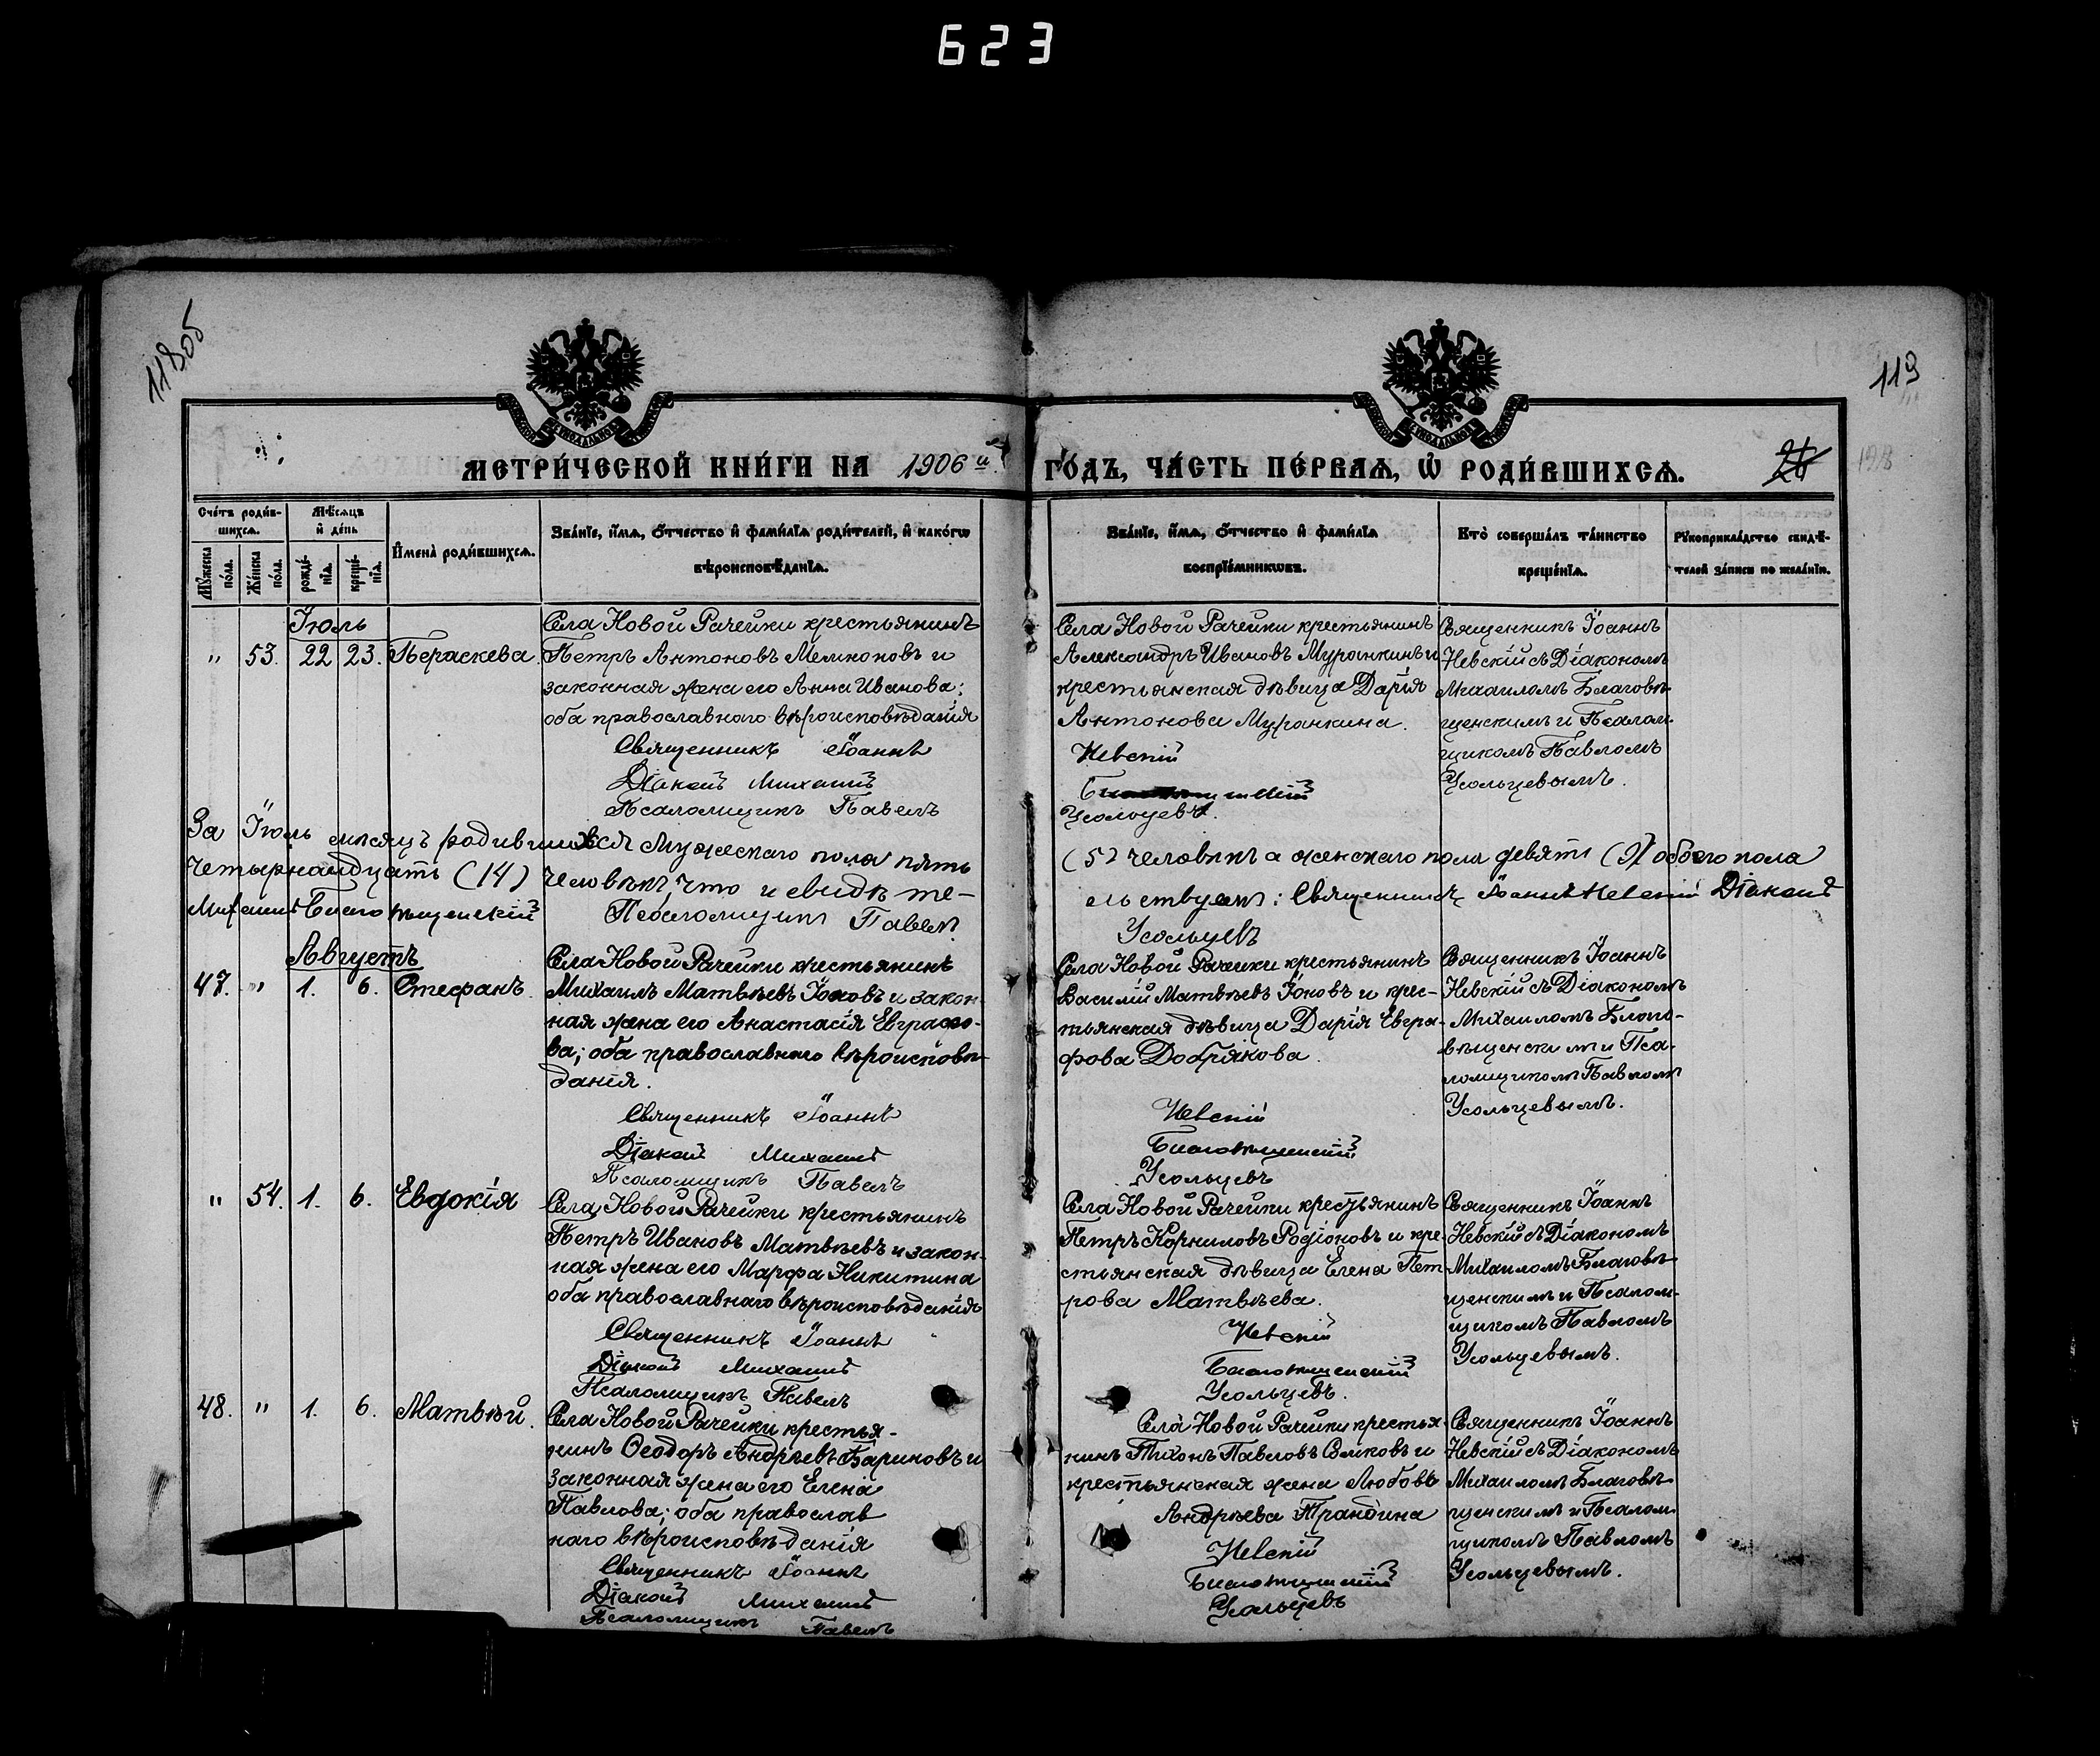 623
11805
119
МЕТРИ́ЧЕСКОЙ КНИ́ГИ НА 1906 й ГО́ДЪ, ЧА́СТЬ ПЕ́РВАѦ, Ѡ҆ РОДИ́ВШИХСѦ.
Сче́тъ роди́в-
шихсѧ.
Мѣ́сѧцъ
и҆ де́нь
Мꙋ́жеска
по́ла.
Же́нска
по́ла.
рожде́-
нїѧ.
креще́-
нїѧ.
И҆мена̀ роди́вшихсѧ.
Зва́нїе, и҆́мѧ, ѻ҆́тчество и҆ фами́лїѧ роди́телей, и҆ како́гѡ
вѣроисповѣ́данїѧ.
Зва́нїе, и҆́мѧ, ѻ҆́тчество и҆ фами́лїѧ
воспрїе́мникѡвъ.
Кто̀ соверша́лъ та́инство
креще́нїѧ.
Рꙋкоприкла́дство свидѣ́-
телей за́писи по жела́нїю.
Іюль
" 53. 22 23. Параскева
Села Новой Рачейки крестьянинъ
Петръ Антоновъ Мемноновъ и
законная жена его Анна Иванова;
оба православнаго вѣроисповѣданія
Священникъ Іоаннъ
Діаконъ Михаилъ
Псаломщикъ Павелъ
Села Новой Рачейки крестьянинъ
Александръ Ивановъ Муранкинъ и
крестьянская дѣвица Дарія
Антонова Муранкина.
Невскій
Усольцевъ.
Священникъ Іоаннъ
Невскій съ Діакономъ
Михаиломъ Благовѣ-
щенскимъ и Псалом-
щикомъ Павломъ
Усольцевымъ.
За Іюль мѣсяцъ родившихся мужескаго пола пять (5) человѣкъ а женскаго пола девять (9) обоего пола
четырнадцать (14) человѣкъ, что и свидѣте- льствуемъ: Священникъ Іоаннъ Невскій Діаконъ
Михаилъ Благовѣщенскій Псаломщикъ Павелъ Усольцевъ
Августъ
47. " 1. 6. Стефанъ.
Села Новой Рачейки крестьянинъ
Михаилъ Матвѣевъ Іоновъ и закон-
ная жена его Анастасія Евграфо-
ва; оба православнаго вѣроисповѣ-
данія.
Священникъ Іоаннъ
Діаконъ Михаилъ
Псаломщикъ Павелъ
Села Новой Рачейки крестьянинъ
Василій Матвѣевъ Іоновъ и крес-
тьянская дѣвица Дарія Евгра-
фова Добрякова.
Невскій
Благовѣщенскій
Усольцевъ
Священникъ Іоаннъ
Невскій съ Діакономъ
Михаиломъ Благо-
вѣщенскимъ и Пса-
ломщикомъ Павломъ
Усольцевымъ.
" 54. 1. 6. Евдокія
Села Новой Рачейки крестьянинъ
Петръ Ивановъ Матвѣевъ и закон-
ная жена его Марфа Никитина
оба православнаго вѣроисповѣданія
Священникъ Іоаннъ
Діаконъ Михаилъ
Псаломщикъ Павелъ
Села Новой Рачейки крестьянинъ
Петръ Корниловъ Родіоновъ и кре-
стьянская дѣвица Елена Пет
рова Матвѣева.
Невскій
Благовѣщенскій
Усольцевъ.
Священникъ Іоаннъ
Невскій съ Діакономъ
Михаиломъ Благовѣ-
щенскимъ и Псалом-
щикомъ Павломъ
Усольцевымъ.
48. " 1. 6. Матвѣй.
Села Новой Рачейки крестья-
нинъ Ѳеодоръ Андреевъ Бариновъ и
законная жена его Елена
Павлова; оба православ
наго вѣроисповѣданія
Священникъ Іоаннъ
Діаконъ Михаилъ
Псаломщикъ Павелъ
Села Новой Рачейки крестья-
нинъ Тихонъ Павловъ и
крестьянская жена Любовь
Андреева Трандина
Невскій
Благовѣщенскій
Усольцевъ
Священникъ Іоаннъ
Невскій съ Діакономъ
Михаиломъ Благовѣ-
щенскимъ и Псалом-
щикомъ Павломъ
Усольцевымъ.